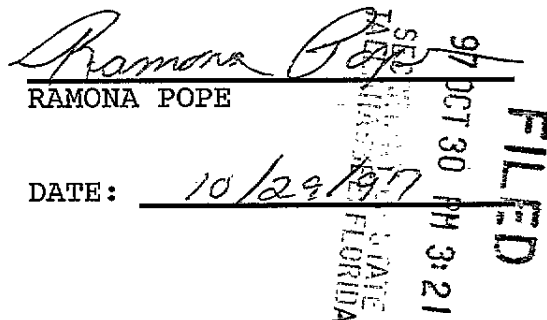 Ramona Pope
RAMONA POPE
DATE: 10/29/97
FILED
97 OCT 30 PM 3:21
STATE
FLORIDA